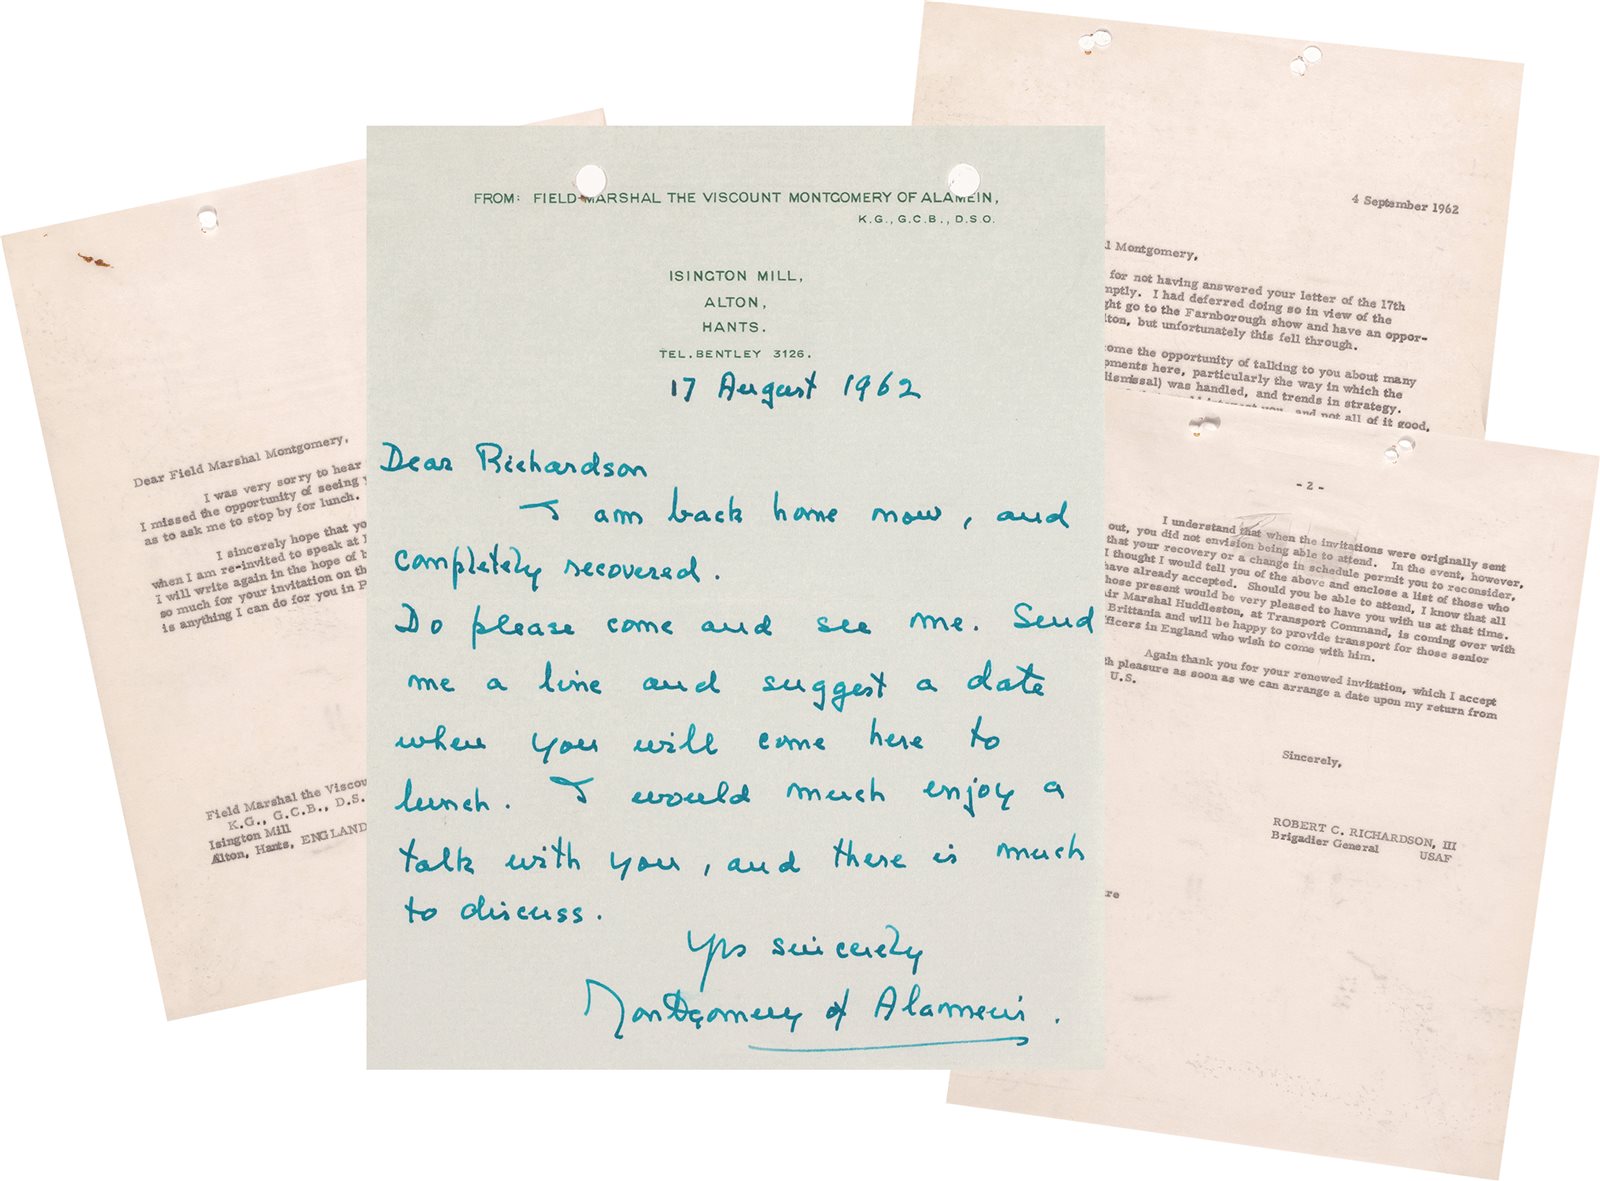 Dear Field Marshal Montgomery,
I was very sorry to hear
I missed the opportunity of seeing
as to ask me to stop by for lunch.
I sincerely hope that yo
when I am re-invited to speak at
I will write again in the hope of
so much for your invitation on th
is anything I can do for you in P
Field Marshal the Viscou
K.G., G.C.B., D.S.
Isington Mill
Alton, Hants, ENGLAND
FROM: FIELD-MARSHAL THE VISCOUNT MONTGOMERY OF ALAMEIN,
K.G., G.C.B., D.S.O.
ISINGTON MILL,
ALTON,
HANTS.
TEL. BENTLEY 3126.
17 August 1962
Dear Richardson
I am back home now, and
completely recovered.
Do please come and see me. Send
me a line and suggest a date
when you will come here to
lunch. I would much enjoy a
talk with you, and there is much
to discuss.
Yrs sincerely
Montgomery of Alamein.
4 September 1962
l Montgomery,
for not having answered your letter of the 17th
mptly. I had deferred doing so in view of the
ght go to the Farnborough show and have an oppor-
lton, but unfortunately this fell through.
ome the opportunity of talking to you about many
pments here, particularly the way in which the
dismissal) was handled, and trends in strategy.
interest you, and not all of it good,
- 2 -
I understand that when the invitations were originally sent
out, you did not envision being able to attend. In the event, however,
that your recovery or a change in schedule permit you to reconsider,
I thought I would tell you of the above and enclose a list of those who
have already accepted. Should you be able to attend, I know that all
hose present would be very pleased to have you with us at that time.
ir Marshal Huddleston, at Transport Command, is coming over with
Brittania and will be happy to provide transport for those senior
fficers in England who wish to come with him.
Again thank you for your renewed invitation, which I accept
th pleasure as soon as we can arrange a date upon my return from
U.S.
Sincerely,
ROBERT C. RICHARDSON, III
Brigadier General USAF
re